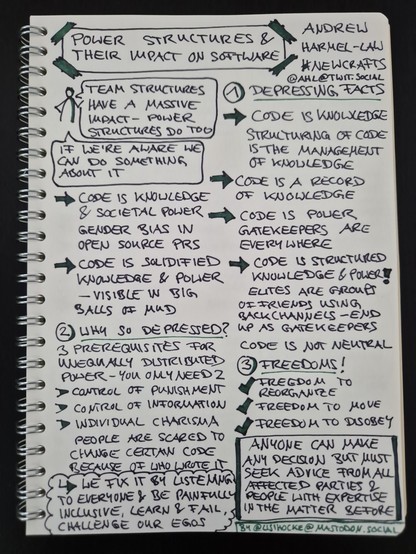 POWER STRUCTURES &
THEIR IMPACT ON SOFTWARE
ANDREW
HARMEL-LAW
#NEWCRAFTS
@AHL@TWIT.SOCIAL
TEAM STRUCTURES
HAVE A MASSIVE
IMPACT - POWER
STRUCTURES DO TOO
IF WE'RE AWARE WE
CAN DO SOMETHING
ABOUT IT
① DEPRESSING FACTS
→ CODE IS KNOWLEDGE
STRUCTURING OF CODE
IS THE MANAGEMENT
OF KNOWLEDGE
→ CODE IS A RECORD
OF KNOWLEDGE
→ CODE IS KNOWLEDGE
& SOCIETAL POWER
GENDER BIAS IN
OPEN SOURCE PRS
→ CODE IS POWER
GATEKEEPERS ARE
EVERYWHERE
→ CODE IS SOLIDIFIED
KNOWLEDGE & POWER
- VISIBLE IN BIG
BALLS OF MUD
→ CODE IS STRUCTURED
KNOWLEDGE & POWER!
ELITES ARE GROUPS
OF FRIENDS USING
BACKCHANNELS - END
UP AS GATEKEEPERS
CODE IS NOT NEUTRAL
② WHY SO DEPRESSED?
3 PREREQUISITES FOR
UNEQUALLY DISTRIBUTED
POWER - YOU ONLY NEED 2
➤ CONTROL OF PUNISHMENT
➤ CONTROL OF INFORMATION
➤ INDIVIDUAL CHARISMA
PEOPLE ARE SCARED TO
CHANGE CERTAIN CODE
BECAUSE OF WHO WROTE IT
↳ WE FIX IT BY LISTENING
TO EVERYONE & BE PAINFULLY
INCLUSIVE, LEARN & FAIL,
CHALLENGE OUR EGOS
③ FREEDOMS!
✓ FREEDOM TO
REORGANIZE
✓ FREEDOM TO MOVE
✓ FREEDOM TO DISOBEY
ANYONE CAN MAKE
ANY DECISION BUT MUST
SEEK ADVICE FROM ALL
AFFECTED PARTIES &
PEOPLE WITH EXPERTISE
IN THE MATTER BEFORE
BY @LISIHOCKE@MASTODON.SOCIAL